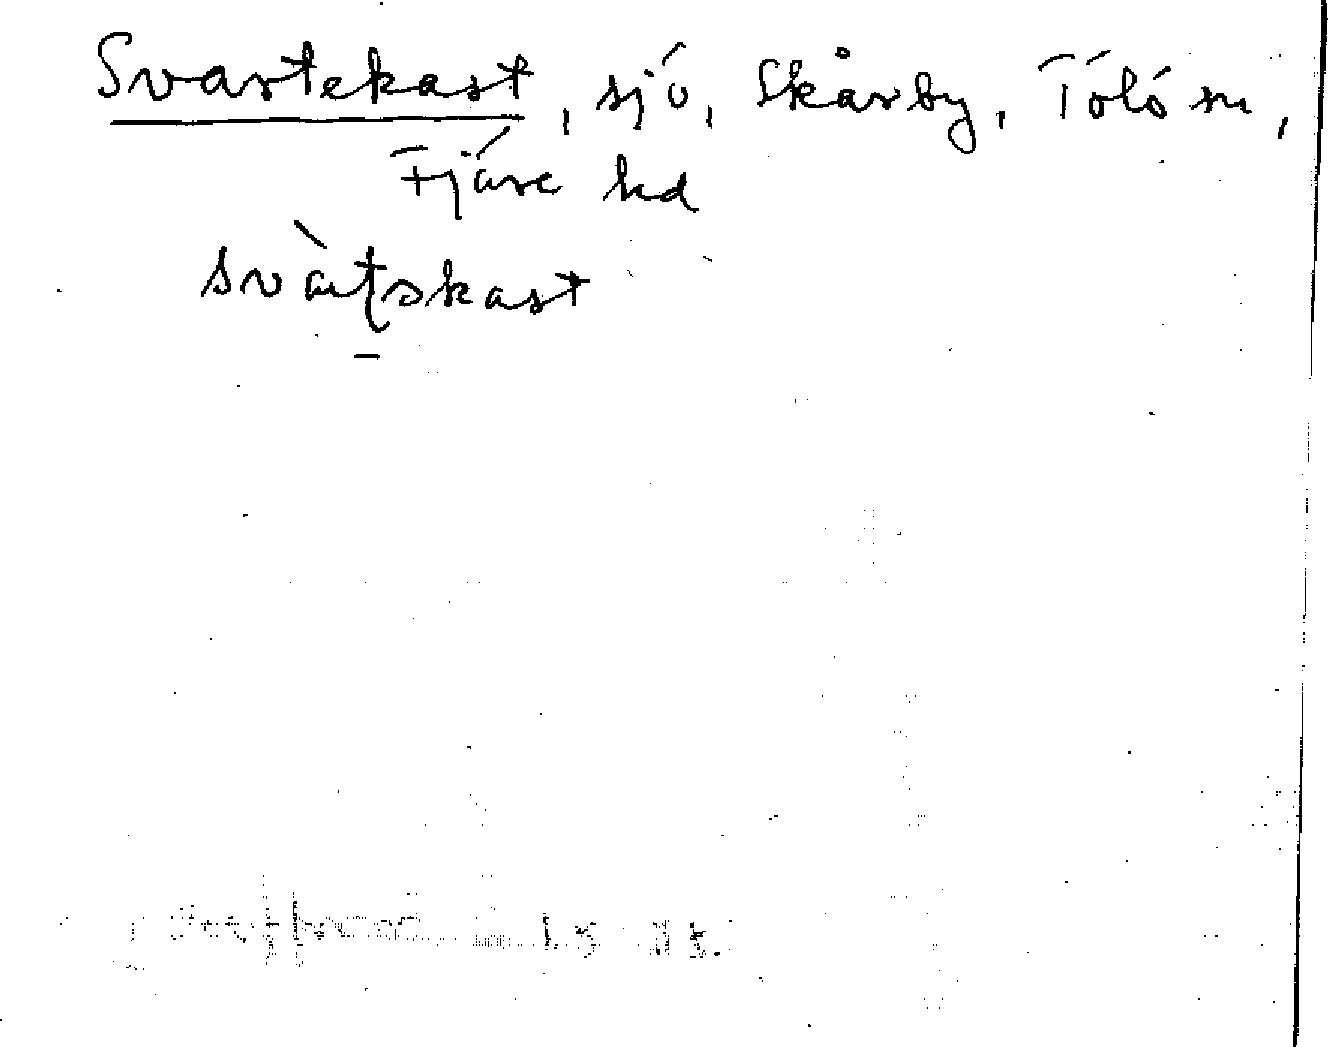 Svartekast, sjö, Skårby, Tölö sn,
Fjäre hd
svàtskast